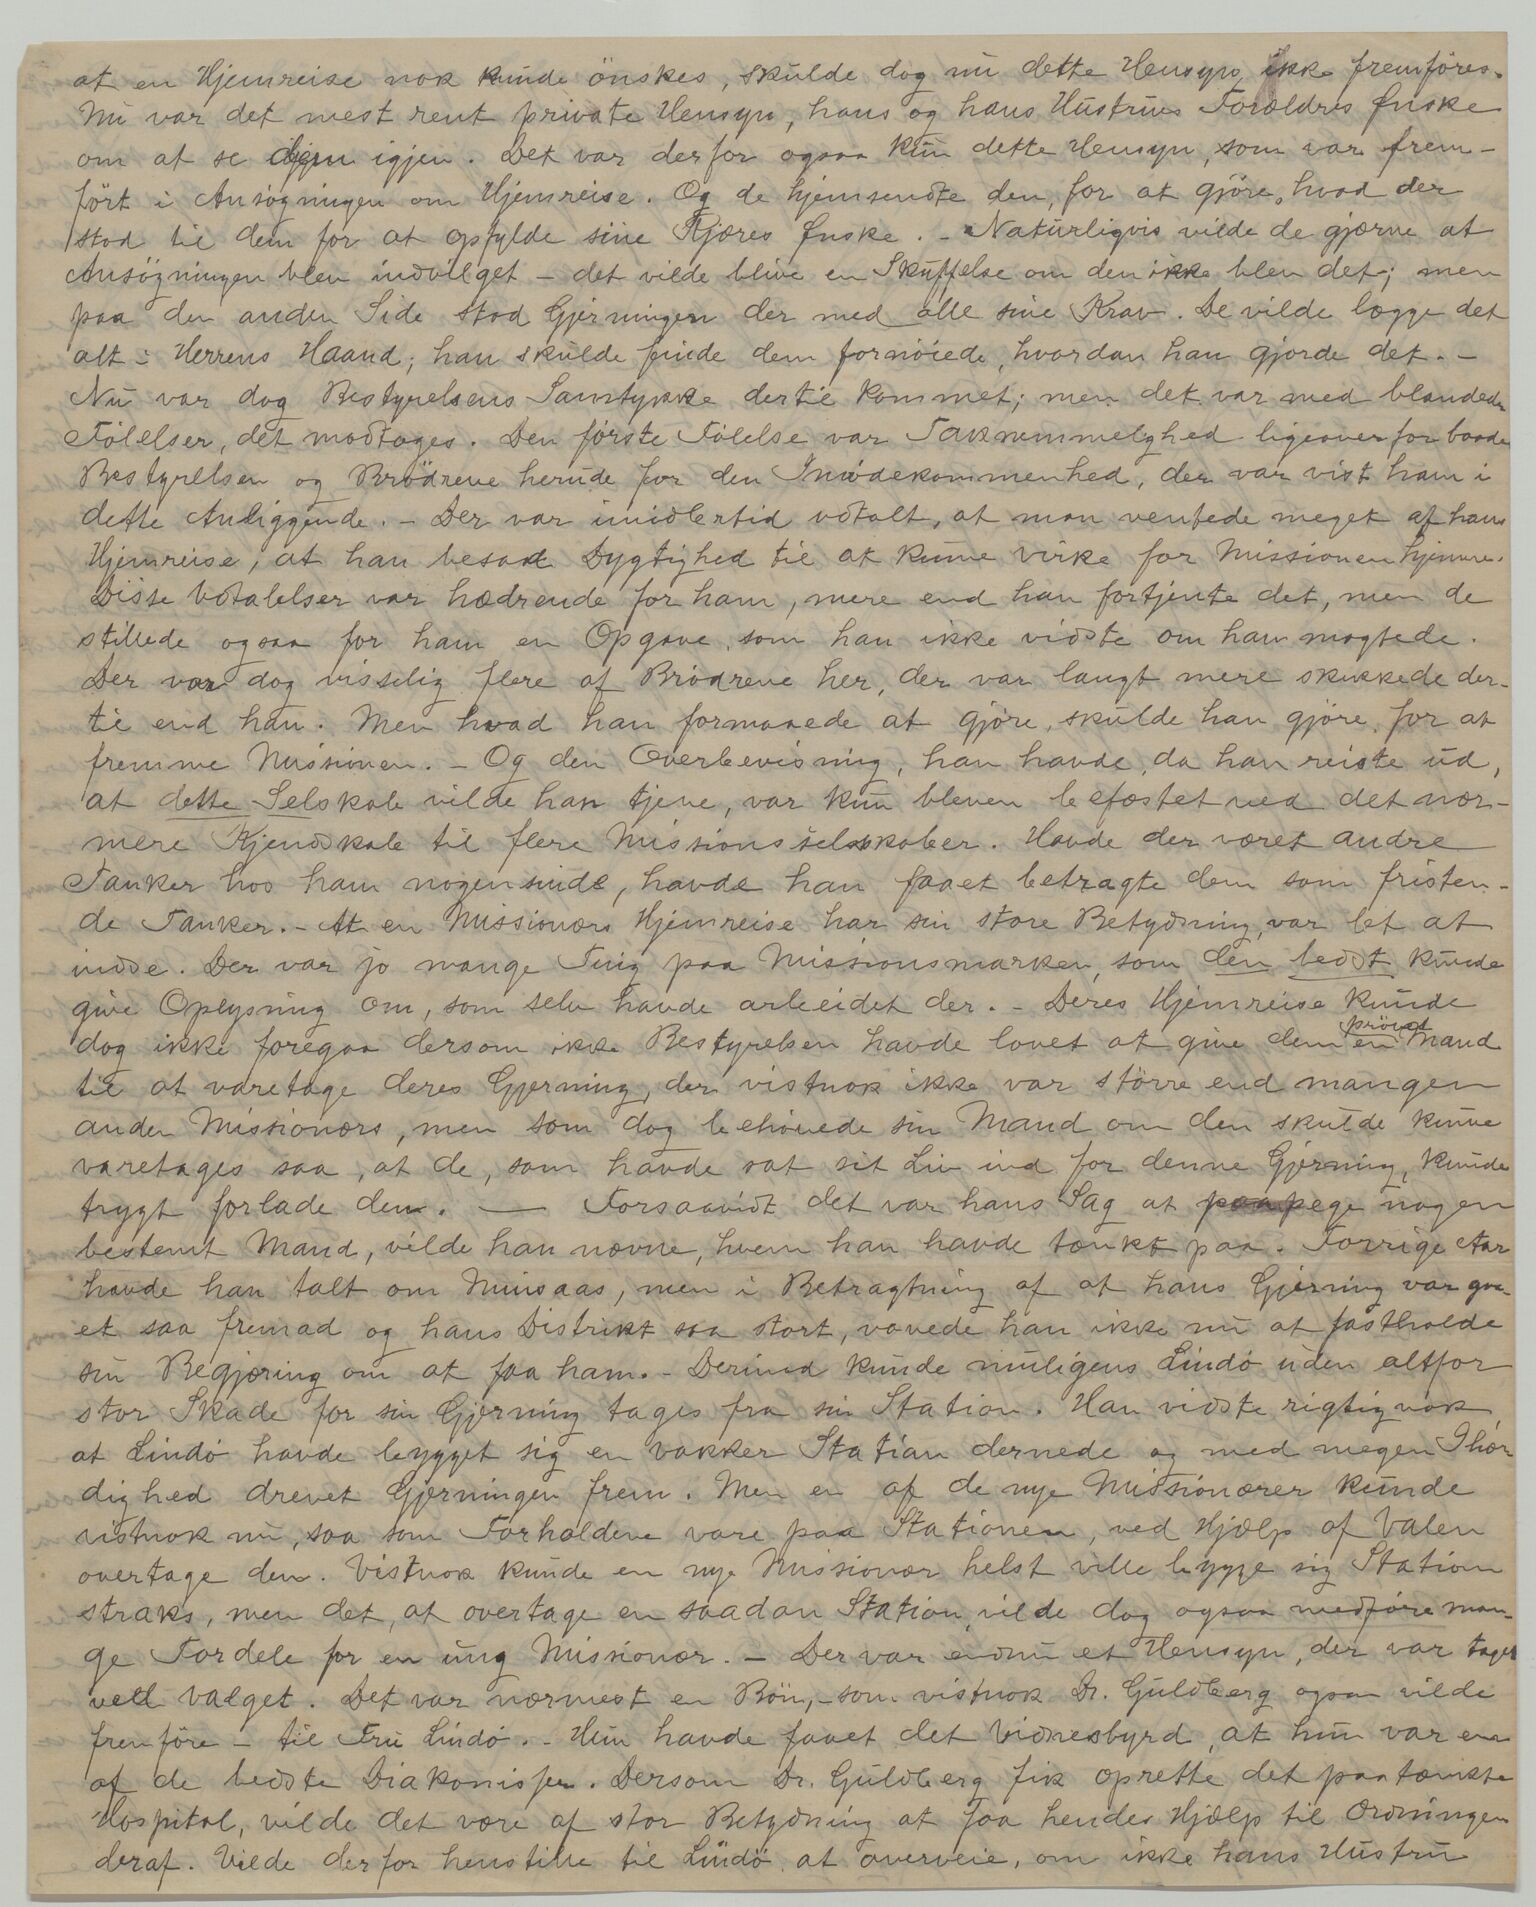 at en Hjemreise nok kunde önskes, skulde dog nu dette Hensyn ikke fremföres.
Nu var det mest rent private Hensyn, hans og hans Hustrus Forældres Ønske
om at se dem igjen. Det var derfor ogsaa kun dette Hensyn, som var frem-
fört i Ansögningen om Hjemreise. Og de hjemsendte den, for at gjöre, hvad der
stod til dem for at opfylde sine Kjæres Ønske. - Naturligvis vilde de gjærne at
Ansögningen blev indvilget - det vilde blive en Skuffelse om den ikke blev det; men
paa den anden Side stod Gjerningen der med alle sine Krav. De vilde lægge det
alt i Herrens Haand; han skulde finde dem fornöiede, hvordan han gjorde det. -
Nu var dog Bestyrelsens Samtykke dertil kommet; men det var med blandede
Fölelser, det modtoges. Den förste Fölelse var Taknemmelighed ligeoverfor baade
Bestyrelsen og Brödrene herude for den Imödekommenhed, der var vist ham i
dette Anliggende. - Der var imidlertid udtalt, at man ventede meget af hans
Hjemreise, at han besad Dygtighed til at kunne virke for Missionen hjemme.
Disse Udtalelser var hædrende for ham, mere end han fortjente det, men de
stillede ogsaa for ham en Opgave, som han ikke vidste om han magtede.
Der var dog visselig flere af Brödrene her, der var langt mere skikkede der-
til end han. Men hvad han formaaede at gjöre, skulde han gjöre for at
fremme Missionen. - Og den Overbevisning, han havde, da han reiste ud,
at dette Selskab vilde han tjene, var kun bleven befæstet ved det nær-
mere Kjendskab til flere Missionsselskaber. Havde der været andre
Tanker hos ham nogensinde, havde han faaet betragte dem som fristen-
de Tanker. - At en Missionærs Hjemreise har sin store Betydning, var let at
indse. Der var jo mange Ting paa Missionsmarken, som den bedst kunde
give Oplysning om, som selv havde arbeidet der. - Deres Hjemreise kunde
dog ikke foregaa dersom ikke Bestyrelsen havde lovet at give dem en prövet Mand
til at varetage deres Gjerning, der vistnok ikke var större end mangen
anden Missionærs, men som dog behövede sin Mand om den skulde kunne
varetages saa, at de, som havde sat sit Liv ind for denne Gjerning, kunde
trygt forlade den. — Forsaavidt det var hans Sag at paapege nogen
bestemt Mand, vilde han nævne, hvem han havde tænkt paa. Forrige Aar
havde han talt om Nilsaas, men i Betragtning af at hans Gjerning var gaa-
et saa fremad og hans Distrikt saa stort, vovede han ikke nu at fastholde
sin Begjæring om at faa ham. - Derimod kunde muligens Lindö uden altfor
stor Skade for sin Gjerning tages fra sin Station. Han vidste rigtignok,
at Lindö havde bygget sig en vakker Station dernede og med megen Ihær-
dighed drevet Gjerningen frem. Men en af de nye Missionærer kunde
vistnok nu, saa som Forholdene vare paa Stationen, ved Hjælp af Valen
overtage den. Vistnok kunde en nye Missionær helst ville bygge sig Station
straks, men det, at overtage en saadan Station, vilde dog ogsaa medföre man-
ge Fordele for en ung Missionær. - Der var endnu et Hensyn, der var taget
ved Valget. Det var nærmest en Bön, - som vistnok Dr. Guldberg ogsaa vilde
fremföre - til Fru Lindö. - Hun havde faaet det Vidnesbyrd, at hun var en
af de bedste Diakonisser. Dersom Dr. Guldberg fik oprette det paatænkte
Hospital, vilde det være af stor Betydning at faa hendes Hjælp til Ordningen
deraf. Vilde derfor henstille til Lindö at overveie, om ikke hans Hustru